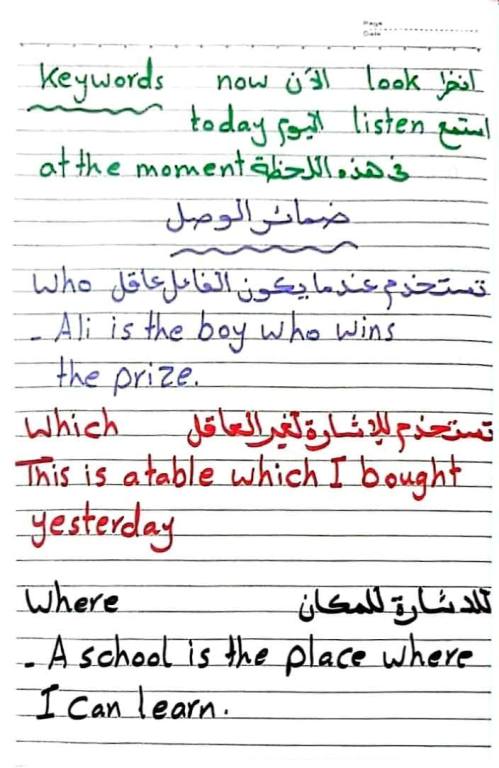 Page
Date
Keywords now الآن look انظر
today اليوم listen استمع
at the moment في هذه اللحظة
ضمائر الوصل
who تستخدم عندما يكون الفاعل عاقل
- Ali is the boy who wins
the prize.
which تستخدم للإشارة لغير العاقل
This is a table which I bought
yesterday
Where للاشارة للمكان
- A school is the place where
I can learn.